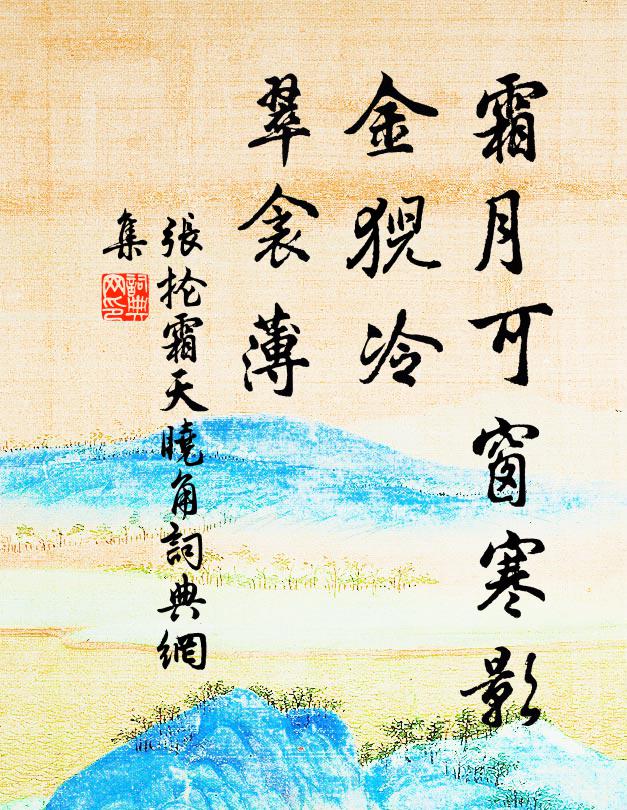 霜月可窗寒影
金猊冷
翠衾薄
張掄霜天曉角詞典網
集
詞典
网印